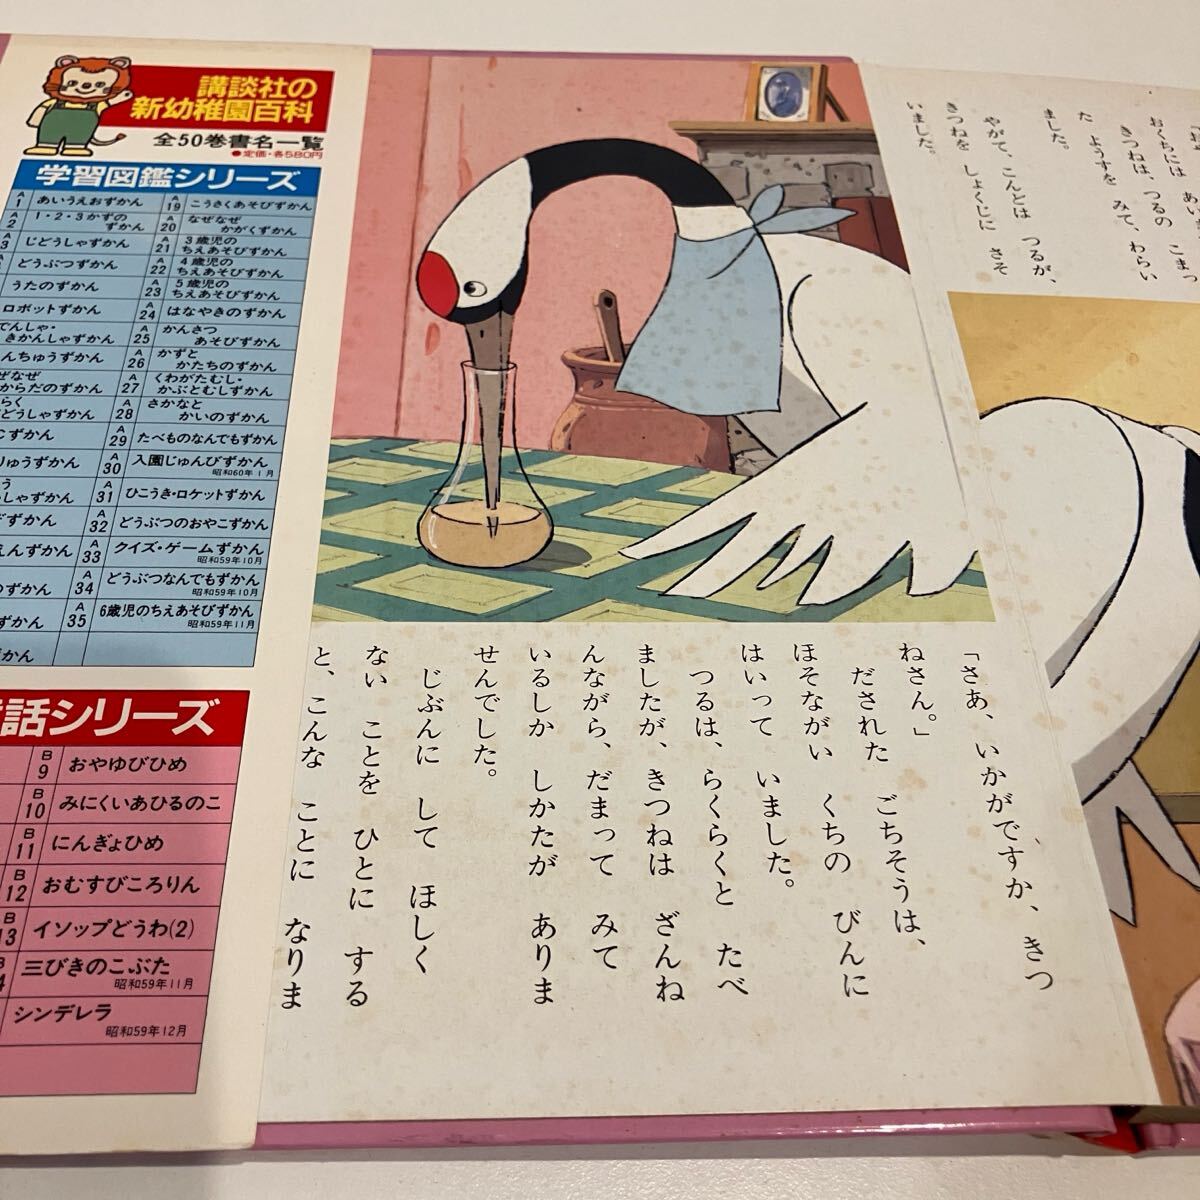 講談社の
新幼稚園百科
全50巻書名一覧
●定価・各580円
学習図鑑シリーズ
A1 あいうえおずかん
A2 1・2・3かずのずかん
3 じどうしゃずかん
どうぶつずかん
うたのずかん
ロボットずかん
でんしゃ・きかんしゃずかん
んちゅうずかん
ぜなぜ
からだのずかん
らく
どうしゃずかん
Cずかん
りゅうずかん
う
しゃずかん
ずかん
えんずかん
のずかん
ずかん
ずかん
A19 こうさくあそびずかん
A20 なぜなぜかがくずかん
A21 3歳児のちえあそびずかん
A22 4歳児のちえあそびずかん
A23 5歳児のちえあそびずかん
A24 はなやきのずかん
A25 かんさつあそびずかん
A26 かずとかたちのずかん
A27 くわがたむし・かぶとむしずかん
A28 さかなとかいのずかん
A29 たべものなんでもずかん
A30 入園じゅんびずかん
昭和60年1月
A31 ひこうき・ロケットずかん
A32 どうぶつのおやこずかん
A33 クイズ・ゲームずかん
昭和59年10月
A34 どうぶつなんでもずかん
昭和59年10月
A35 6歳児のちえあそびずかん
昭和59年11月
話シリーズ
B9 おやゆびひめ
B10 みにくいあひるのこ
B11 にんぎょひめ
B12 おむすびころりん
B13 イソップどうわ(2)
4 三びきのこぶた
昭和59年11月
シンデレラ
昭和59年12月
おくちには あい
きつねは、つるの こまっ
た ようすを みて、わらい
ました。
やがて、こんとは つるが、
きつねを しょくじに さそ
いました。
「さあ、いかがですか、きつ
ねさん。」
だされた ごちそうは、
ほそながい くちの びんに
はいって いました。
つるは、らくらくと たべ
ましたが、きつねは ざんね
んながら、だまって みて
いるしか しかたが ありま
せんでした。
じぶんに して ほしく
ない ことを ひとに する
と、こんな ことに なりま